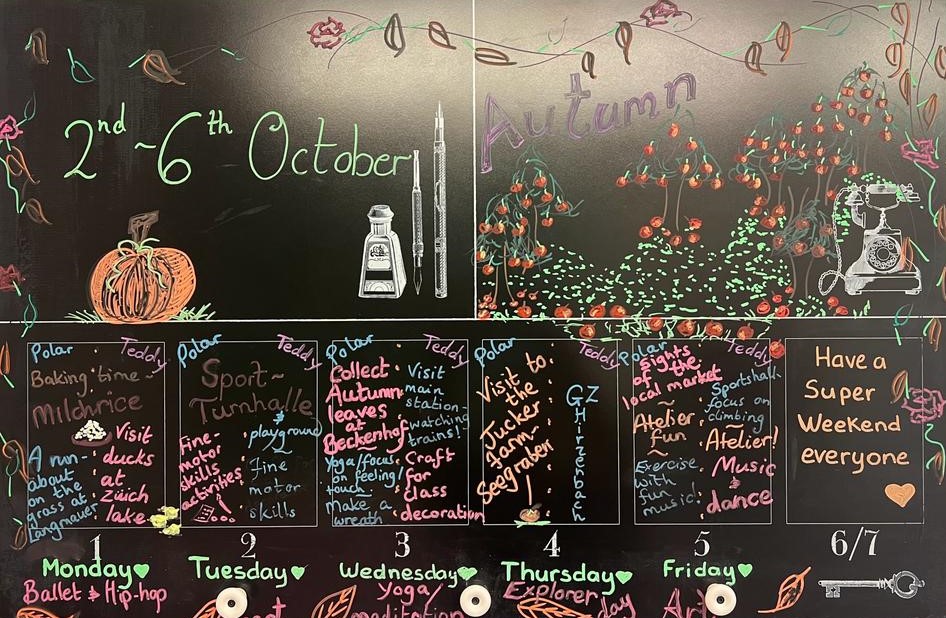 2nd ~ 6th October
Autumn
Polar Teddy
Baking time ~
Milchrice
A run-
about
on the
grass at
Langmauer
Visit
ducks
at
Zürich
lake
Polar Teddy
Sport ~
Turnhalle
Fine-
motor
skills
activities
&
playground
~
fine
motor
skills
Polar Teddy
Collect
Autumn
leaves
at
Beckenhof
Yoga/focus
on feeling/
touch
Make a
wreath
Visit
main
station-
watching
trains!
Craft
for
class
decoration
Polar Teddy
Visit to
the
Jucker
Farm-
Seegräben
GZ
Hirzenbach
Polar Teddy
Sights
of the
local market
~
Atelier
fun
~
Exercise
with
fun
music!
Sportshall
focus on
climbing
~
Atelier!
Music
&
dance
Have a
Super
Weekend
everyone
1 2 3 4 5 6/7
Monday Tuesday Wednesday Thursday Friday
Ballet & Hip-hop
Yoga/
meditation
Explorer
day